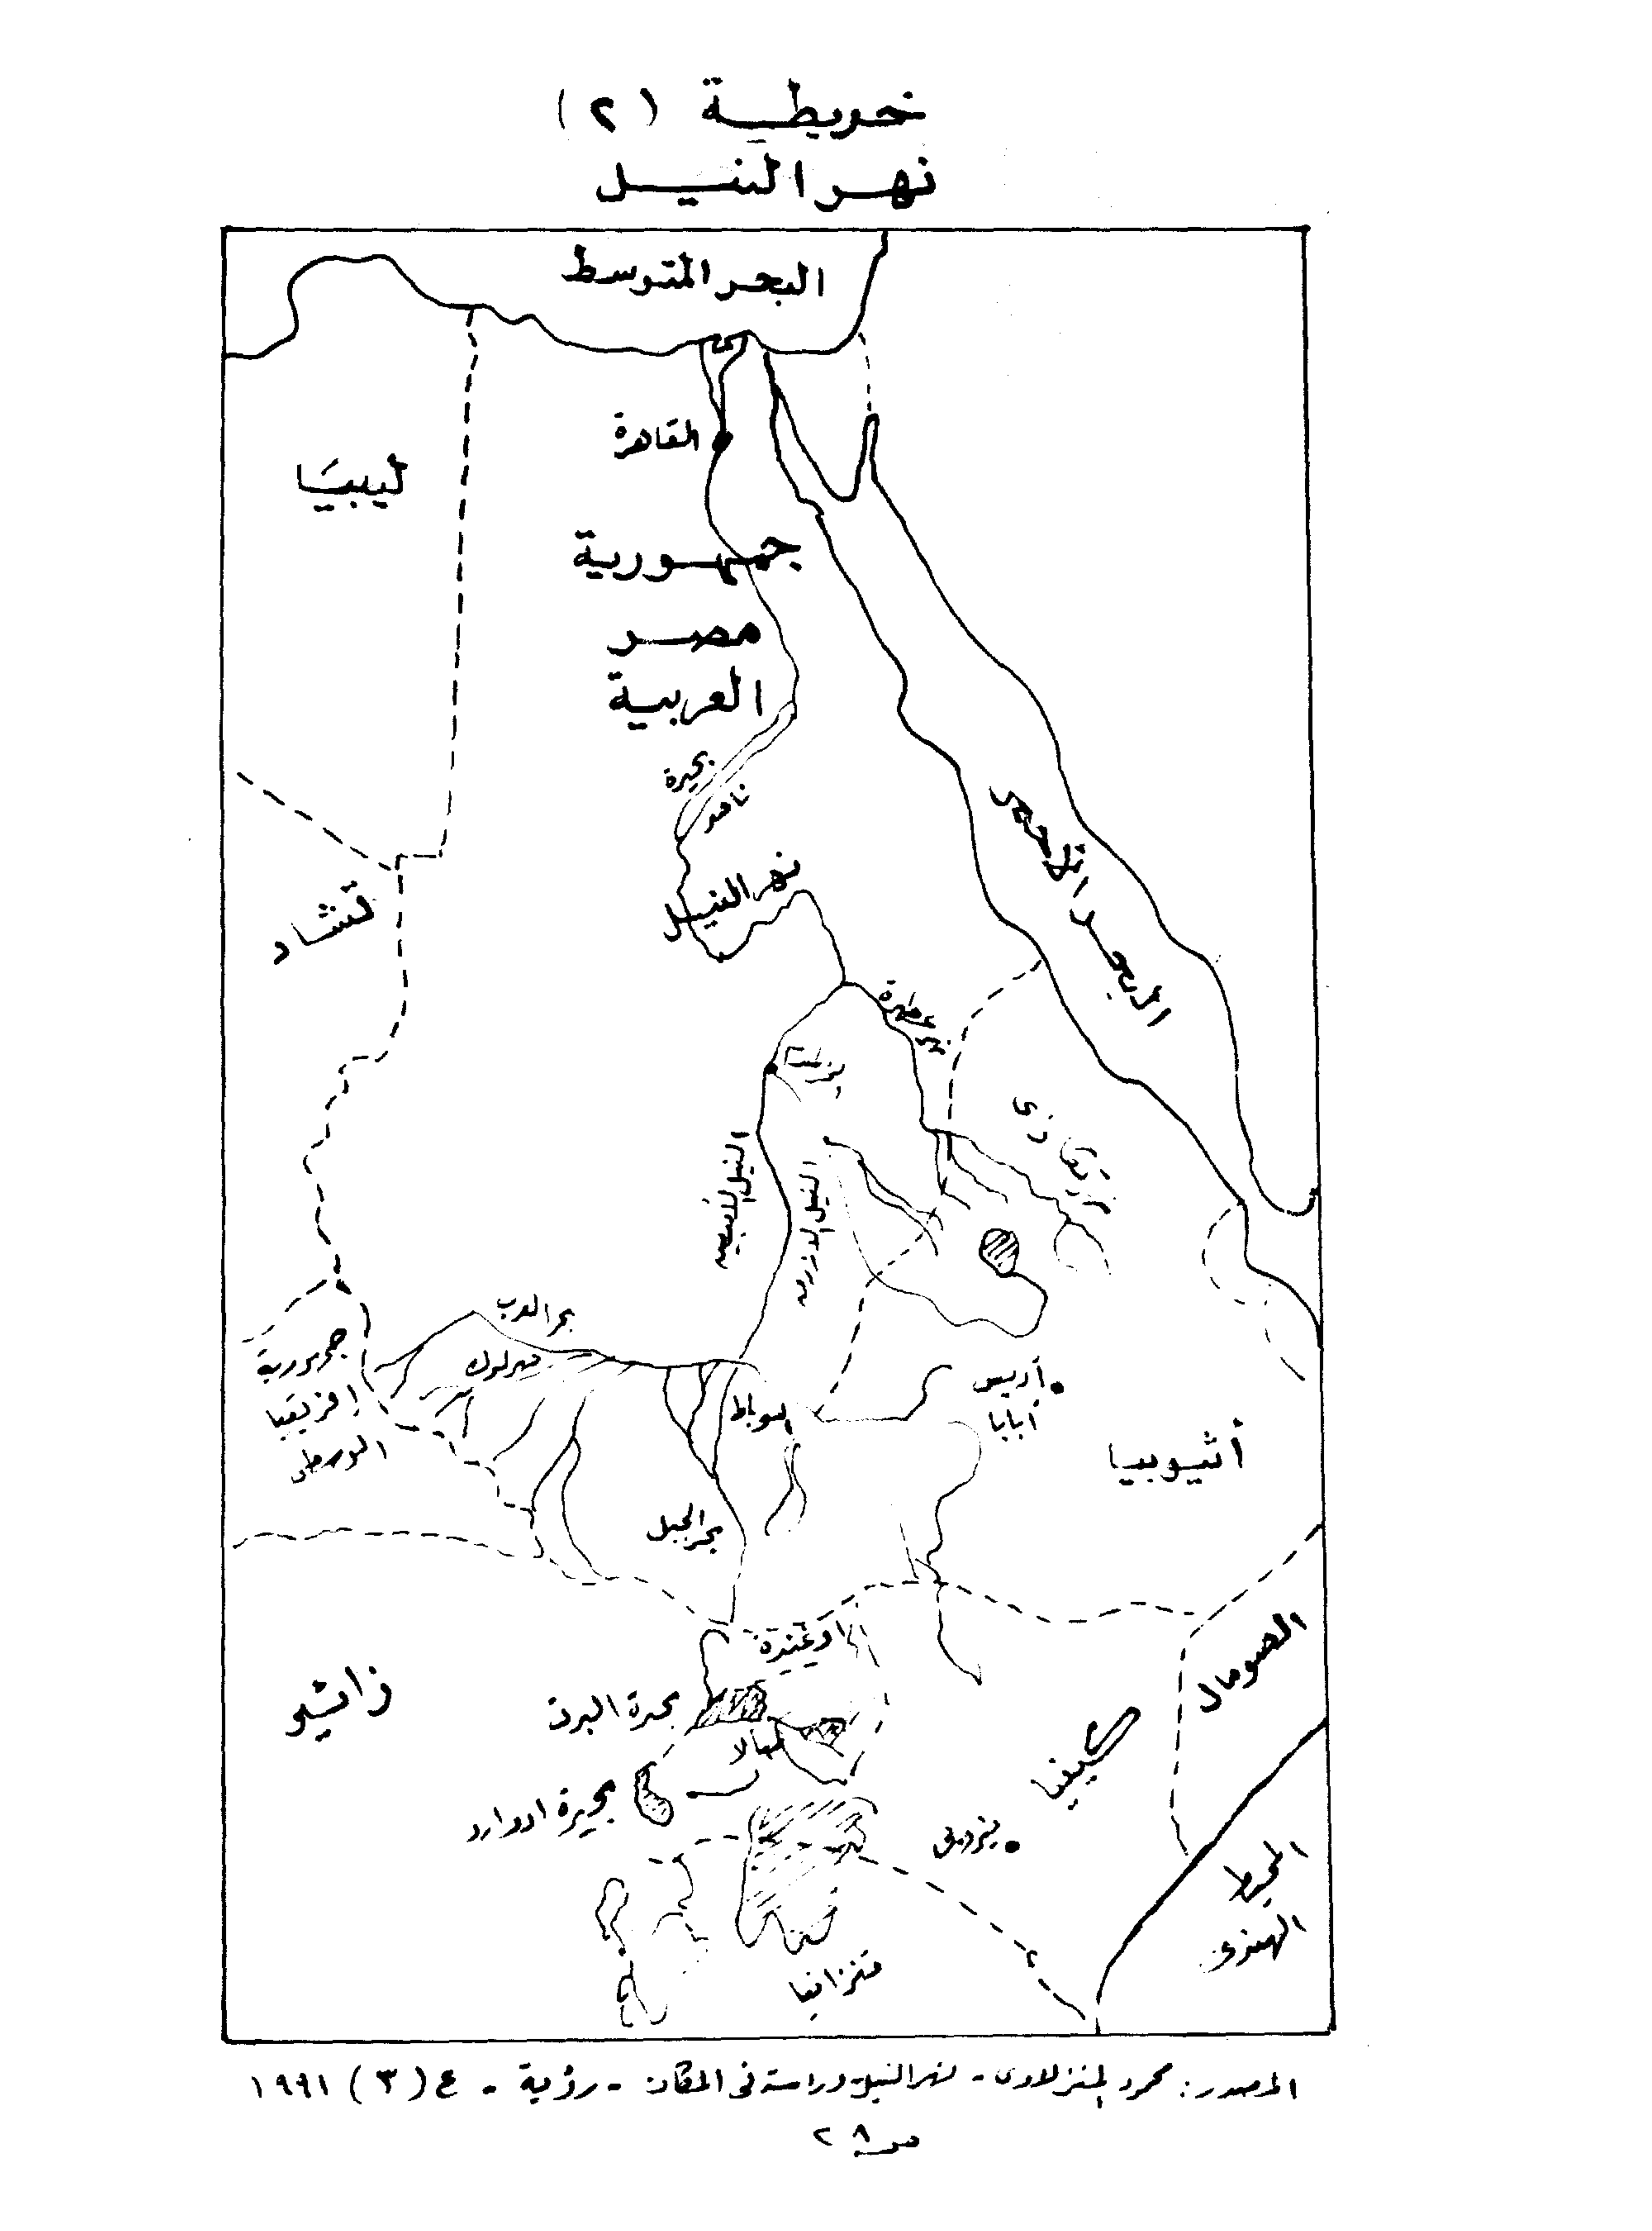 خريطة (٢)
نهر النيل
البحر المتوسط
القاهرة
ليبيا
جمهورية
مصر
العربية
بحيرة
ناصر
البحر الأحمر
نهر النيل
تشاد
نهر عطبرة
النيل الأبيض
النيل الأزرق
بحر العرب
جمهورية
إفريقيا
الوسطى
السوباط
أديس
أبابا
أثيوبيا
بحر الجبل
أوغندة
الصومال
زائير
بحيرة البرت
كينيا
بحيرة ادوارد
نيروبى
المحيط
الهندى
تنزانيا
المصدر: محمود المنزلاوى - نهر النيل دراسة فى المكان - رؤية - ع (٣) ١٩٩١
ص ٢٨